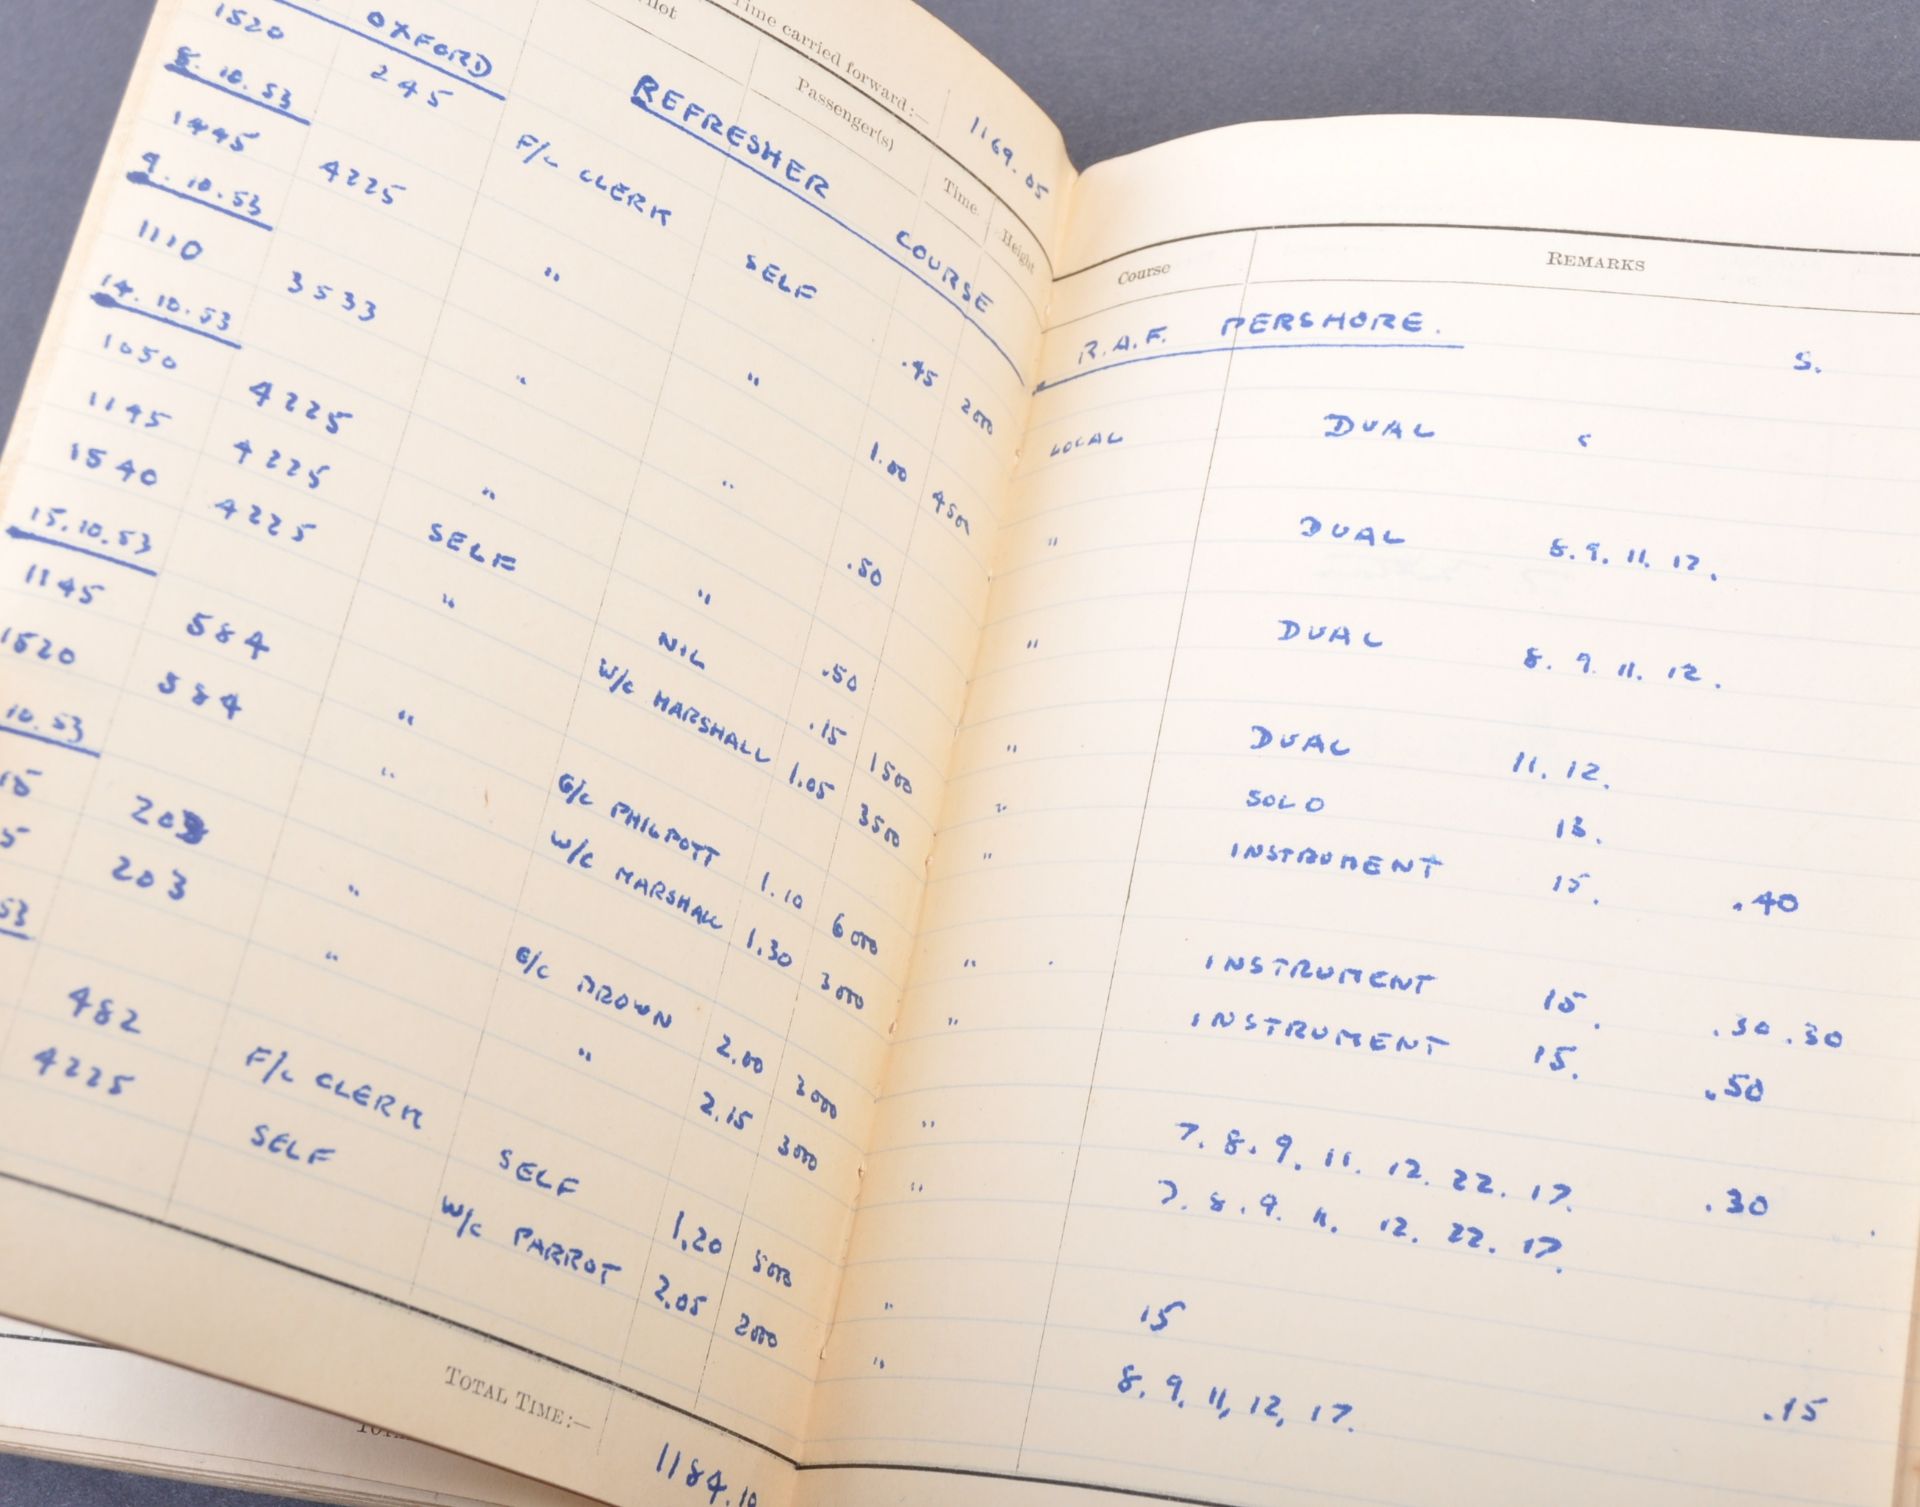 Time carried forward:— 1169.05
Passenger(s) Time Height
OXFORD REFRESHER COURSE
1520 245 F/L CLERK SELF .45 2000
8.10.53
1445 4225 " " 1.00 4500
9.10.53
1110 3533 " " .50
14.10.53
1050 4225 " " .50
1145 4225 SELF NIL .15 1500
1540 4225 " W/C MARSHALL 1.05 3500
15.10.53
1145 584 " G/C PHILPOTT 1.10 6000
1520 584 " W/C MARSHALL 1.30 3000
10.53
15 203 " G/C BROWN 2.00 3000
5 203 " " 2.15 3000
53
482 F/L CLERK SELF 1.20 5000
4225 SELF W/C PARROT 2.05 2000
TOTAL TIME:— 1184.10
Course REMARKS
R.A.F. PERSHORE. S.
LOCAL DUAL
" DUAL 8. 9. 11. 12.
" DUAL 8. 9. 11. 12.
" DUAL 11. 12.
" SOLO 13.
" INSTRUMENT 15. .40
" INSTRUMENT 15. .30 .30
" INSTRUMENT 15. .50
" 7. 8. 9. 11. 12. 22. 17. .30
" 7. 8. 9. 11. 12. 22. 17.
" 15
" 8. 9. 11, 12, 17. .15